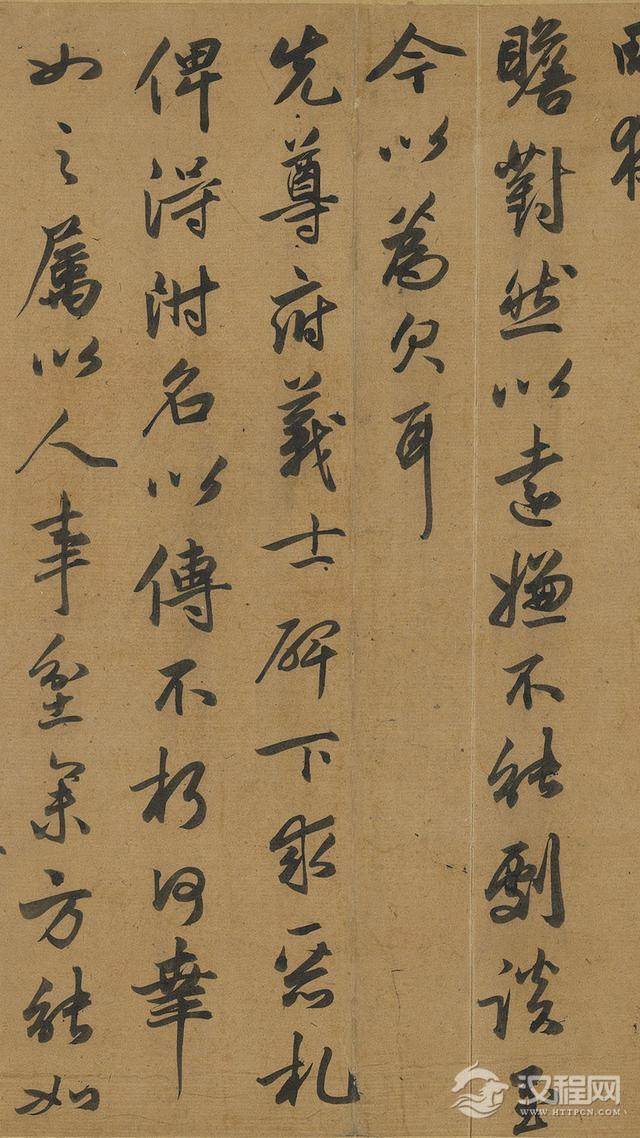 瞻對然以遠嫌不能劇談至
今以為欠耳
先尊府義士碑下求惡札
俾得附名以傳不朽何幸
如之屬以人事坌集方能如
汉程网
WWW.HTTPCN.COM